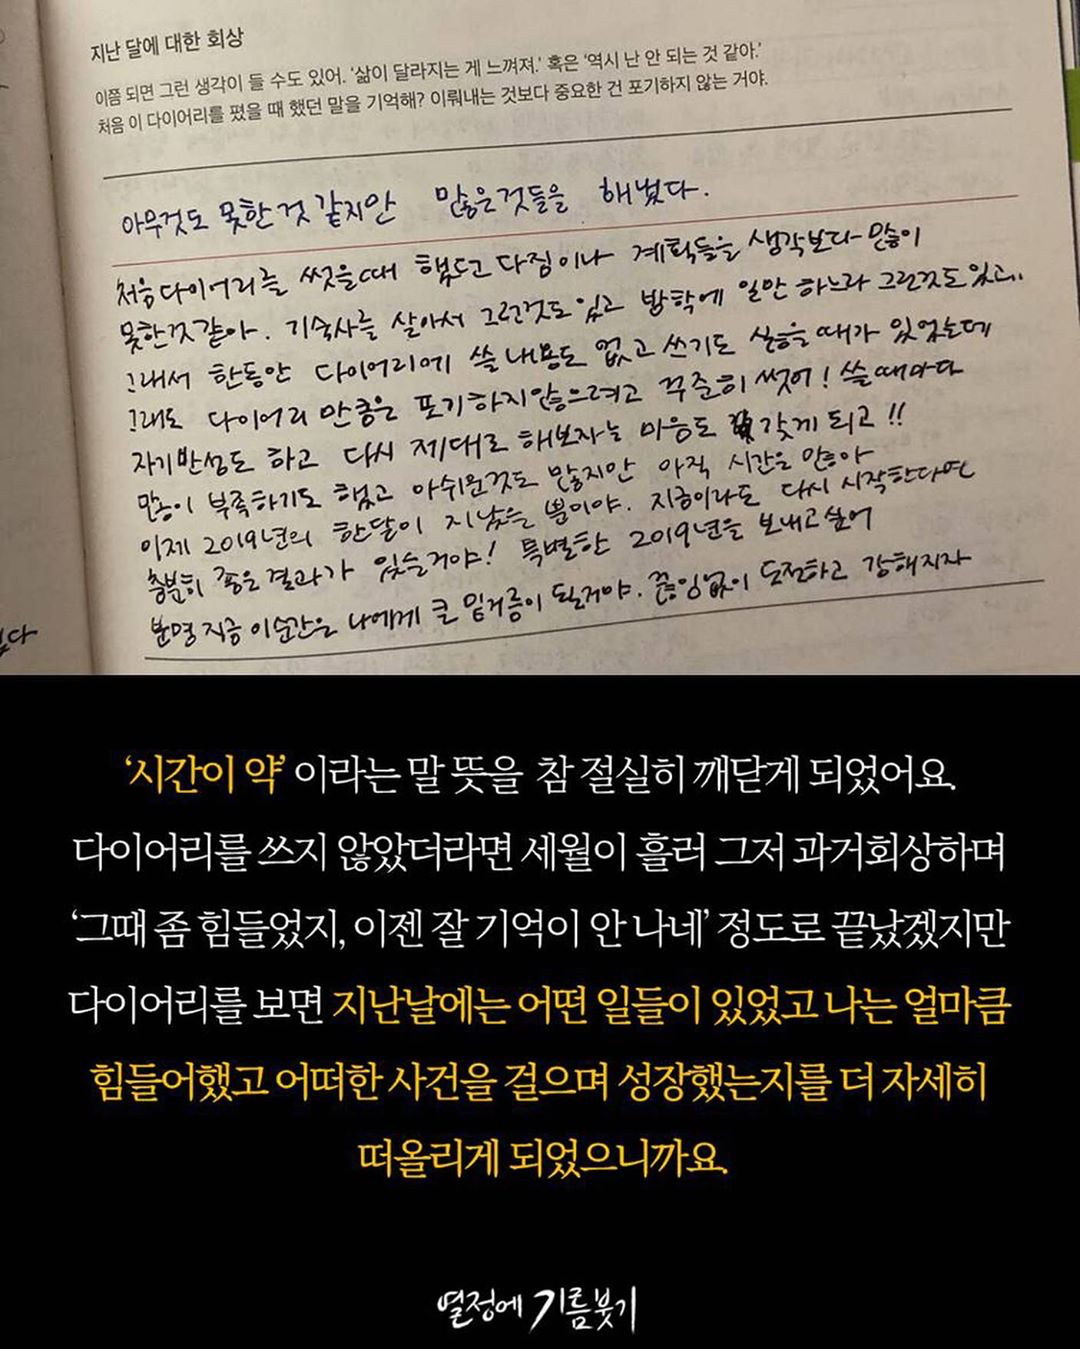 지난 달에 대한 회상
이쯤 되면 그런 생각이 들 수도 있어. '삶이 달라지는 게 느껴져.' 혹은 '역시 난 안 되는 것 같아.'
처음 이 다이어리를 폈을 때 했던 말을 기억해? 이뤄내는 것보다 중요한 건 포기하지 않는 거야.
아무것도 못한 것 같지만 많은것들을 해냈다.
처음 다이어리를 썼을때 했던 다짐이나 계획들을 생각보다 많이
못한것 같아. 기숙사를 살아서 그런것도 있고 방학에 일만 하느라 그런것도 있고..
그래서 한동안 다이어리에 쓸 내용도 없고 쓰기도 싫을때가 있었는데
그래도 다이어리 만큼은 포기하지않으려고 꾸준히 썼어! 쓸때마다
자기반성도 하고 다시 제대로 해보자는 마음도 갖게 되고!!
많이 부족하기도 했고 아쉬운것도 많지만 아직 시간은 많아
이제 2019년의 한달이 지났을 뿐이야. 지금이라도 다시 시작한다면
충분히 좋은 결과가 있을거야! 특별한 2019년을 보내고싶어
분명 지금 이순간은 나에게 큰 밑거름이 될거야. 끊임없이 도전하고 강해지자
'시간이 약' 이라는 말 뜻을 참 절실히 깨닫게 되었어요.
다이어리를 쓰지 않았더라면 세월이 흘러 그저 과거회상하며
'그때 좀 힘들었지, 이젠 잘 기억이 안 나네' 정도로 끝났겠지만
다이어리를 보면 지난날에는 어떤 일들이 있었고 나는 얼마큼
힘들어했고 어떠한 사건을 걸으며 성장했는지를 더 자세히
떠올리게 되었으니까요.
열정에 기름붓기